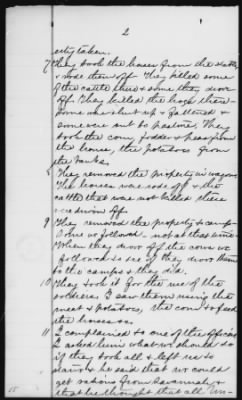 2
city taken.
7 They took the horses from the stable
& rode them off They killed some
of the cattle there & some they drove
off. They killed the hogs there
some was shut up & fattened &
some were out to pasture. They
took the corn, fodder & peas from
the house, the potatoes from
the banks.
8 They removed the property in wagons
The horses were rode off & the
cattle that was not killed there
was driven off.
9 They removed the property to camp
I & we followed not at that time
When they drove off the cows we
followed to see if they drove them
to the camps & they did.
10 They took it for the use of the
soldiers. I saw them using the
meat & potatoes, the corn to feed
the horses on.
11 I complained to one of the officers
I asked him what we should do
if they took all & left us to
starve & he said that we could
get rations from Savannah &
that he thought that all Un-